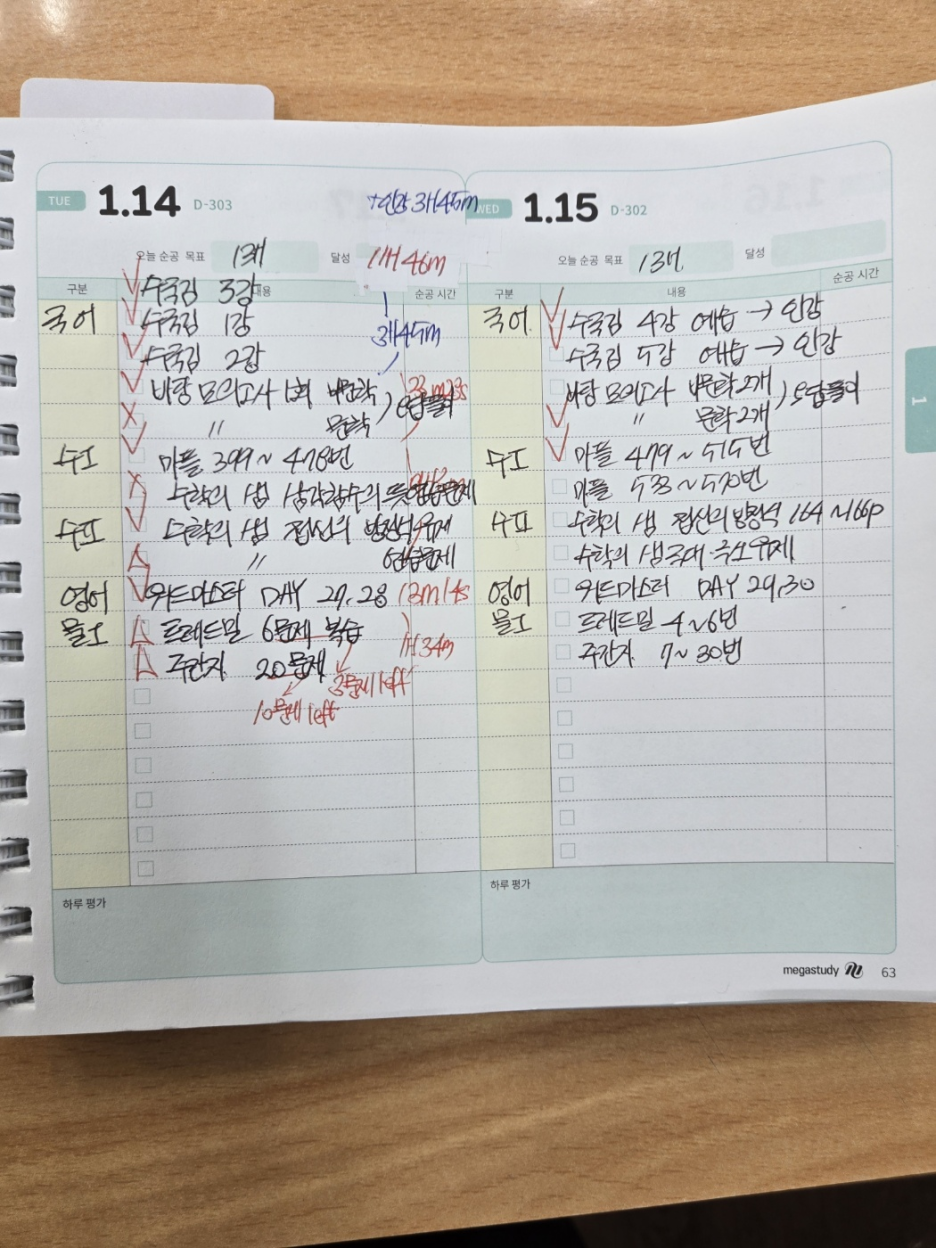 TUE 1.14 D-303
+인강 3H45m
오늘 순공 목표 13H 달성 11H 46m
구분 내용 순공 시간
수국김 3강
국어 수국김 1강
3H45m
수국김 2강
바탕 모의고사 1회 비문학 ) 오답풀이
〃 문학
수I 마플 399~478번
수학의 샘 삼각함수의 뜻 연습문제
수II 수학의 샘 접선의 방정식 유제
〃 연습문제
영어 워드마스터 DAY 27, 28 13m14s
물I 트레드밀 6문제 복습
1H34m
주간지 20문제
3문제 left
10문제 left
하루 평가
WED 1.15 D-302
오늘 순공 목표 13H 달성
구분 내용 순공 시간
국어 수국김 4강 예습 → 인강
수국김 5강 예습 → 인강
바탕 모의고사 비문학 2개 ) 오답풀이
〃 문학 2개
수I 마플 479~515번
마플 533~570번
수II 수학의 샘 접선의 방정식 164~166p
수학의 샘 극대·극소 유제
영어 워드마스터 DAY 29, 30
물I 트레드밀 4~6번
주간지 7~30번
하루 평가
1
megastudy 63